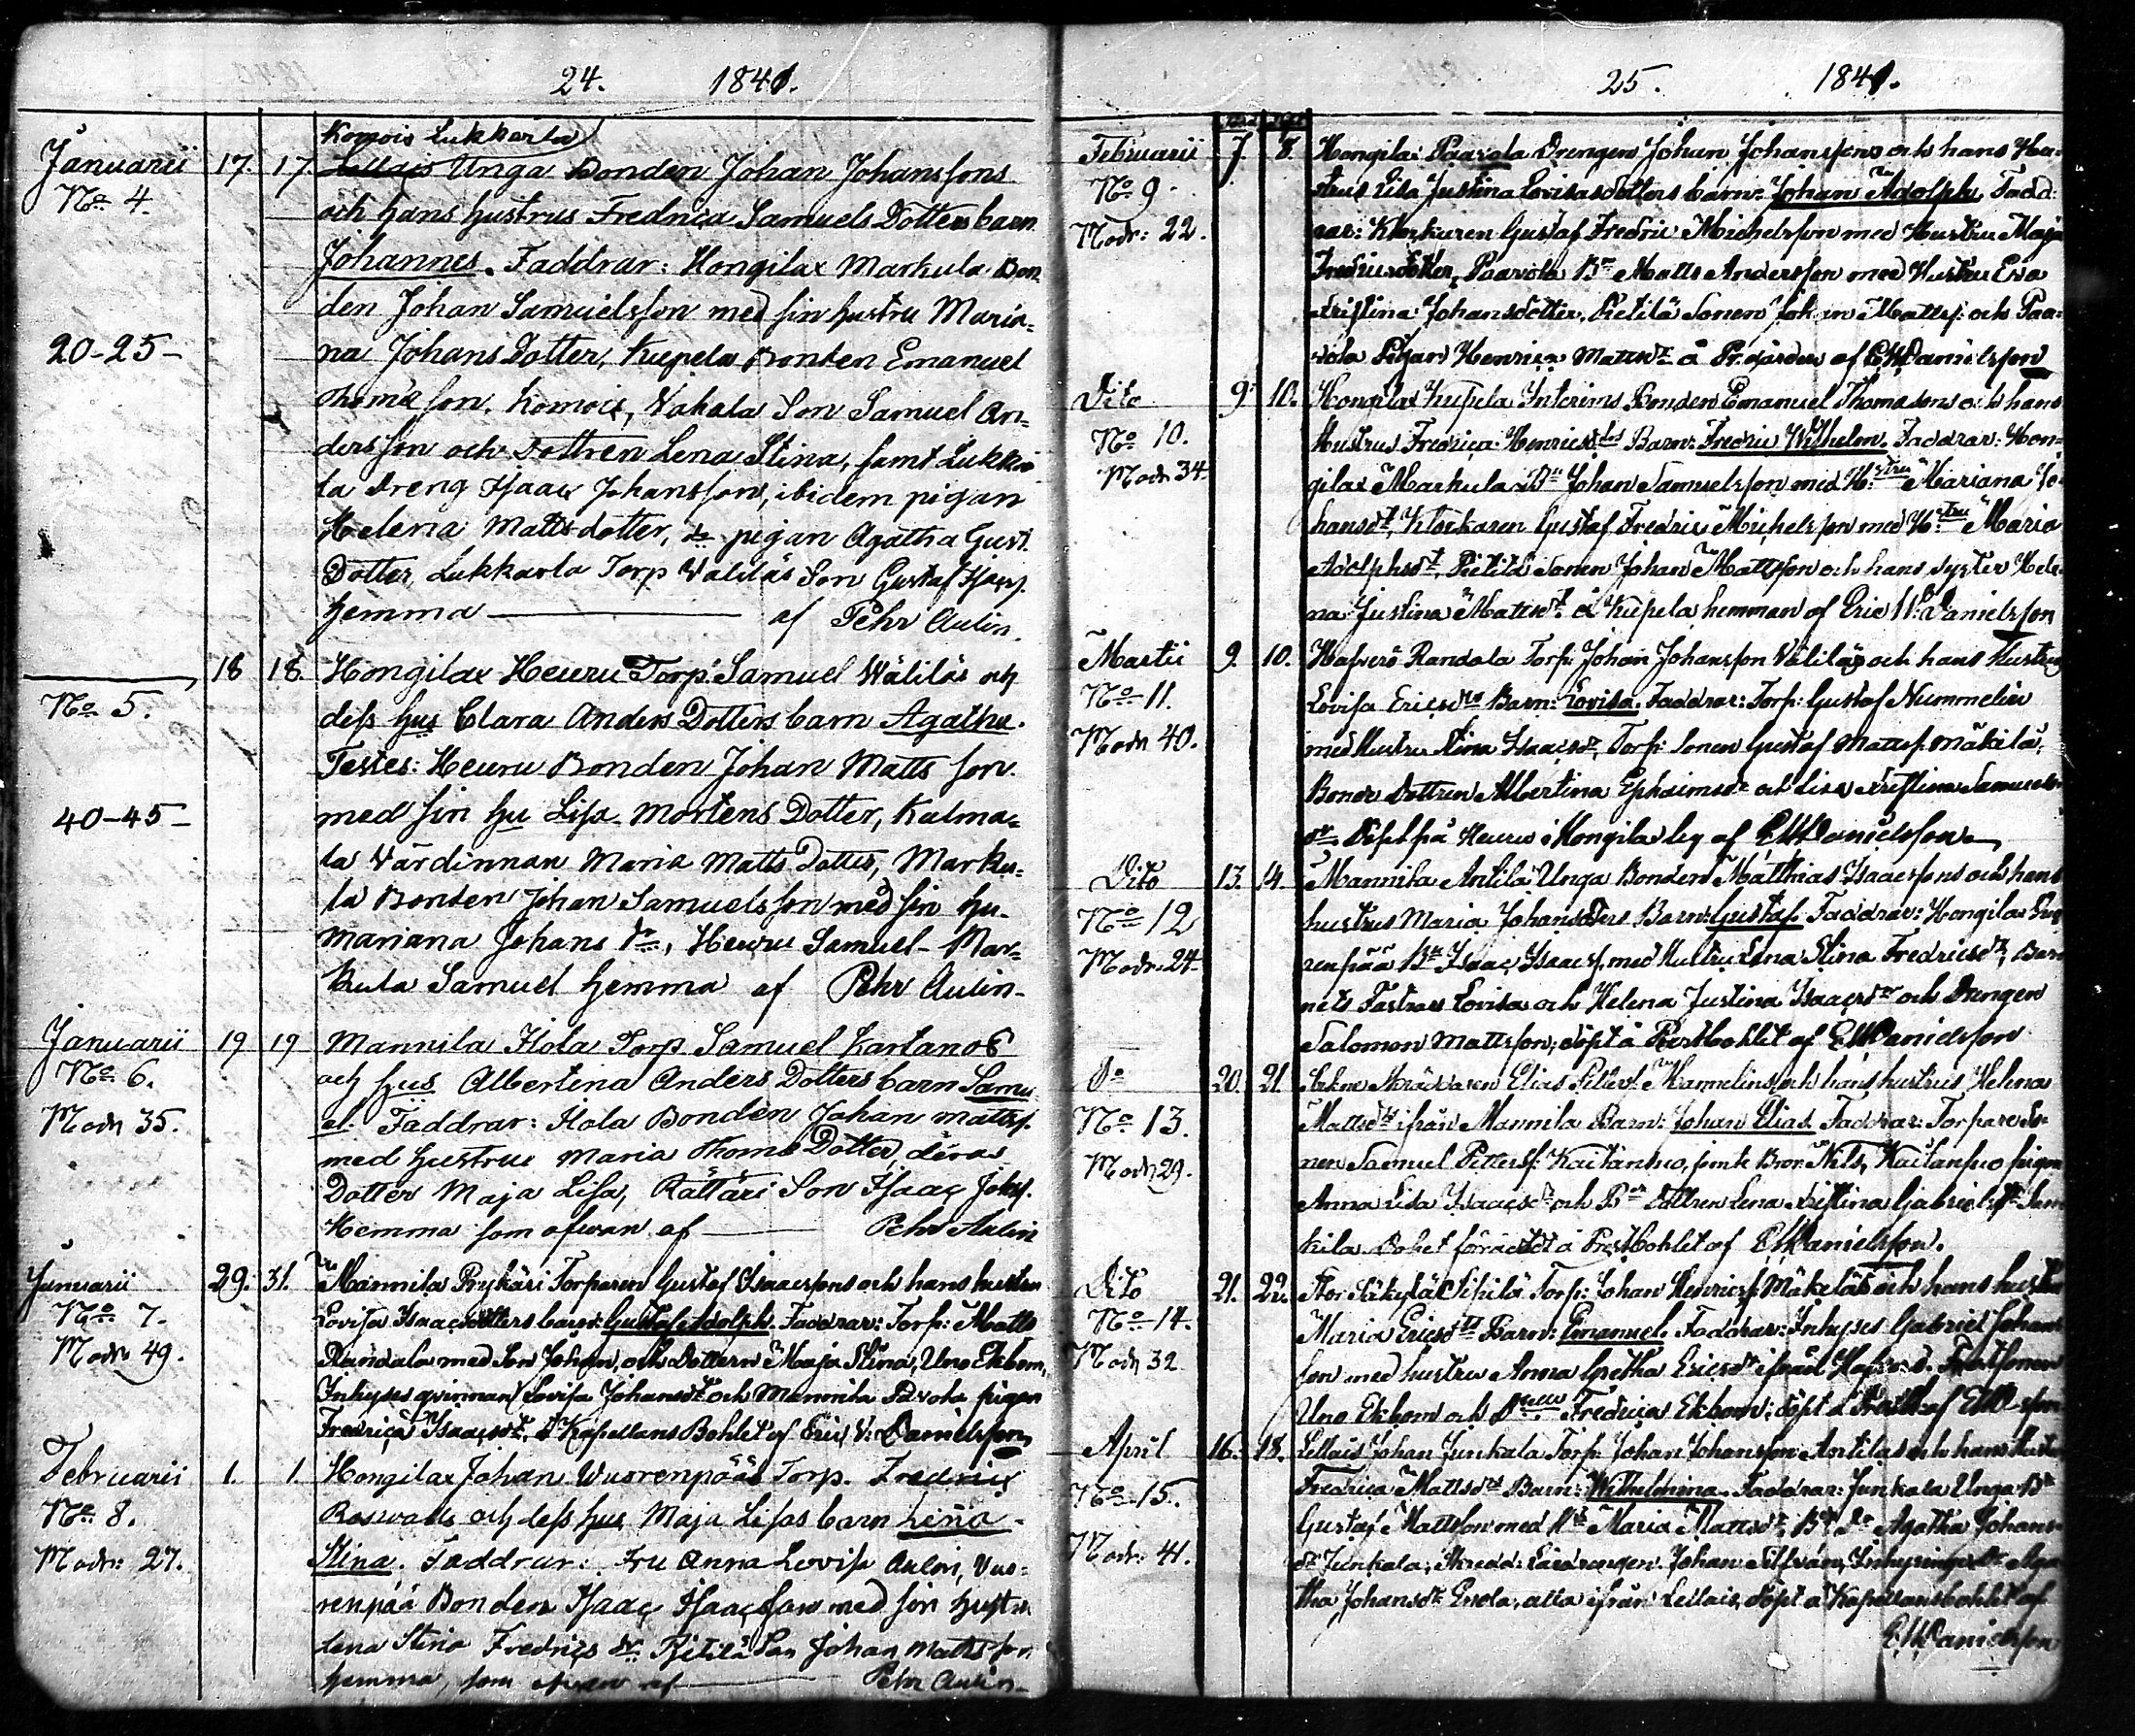 24. 1841.
Komois Lukkarla
Januarii 17. 17. Lellais Unga Bonden Johan Johanssons
No 4. och hans hustrus Fredrica Samuels Dotters barn
Johannes. Faddrar: Hongilax Markula Bon
den Johan Samuelsson med sin hustru Maria-
20-25- na Johans Dotter, Kupela Bonden Emanuel
Thomæson. Komois, Vakala Son Samuel An-
dersson och Dottren Lena Stina, samt Lukka
la Dreng Isaac Johansson, ibidem pigan
Helena Mattsdotter, pigan Agatha Gust.
Dotter, Lukkarla Torp Wäliläs Son Gustaf Isacs.
hemma af Pehr Aulin.
18 18. Hongilax Heuru Torp. Samuel Wäliläs och
No 5. dess hus Clara Anders Dotters barn Agatha.
Testes: Heuru Bonden Johan Matts son
40-45- med sin hu Lisa Mortens Dotter, Kulma-
la Värdinnan Maria Matts Dotter, Marku-
la Bonden Johan Samuelsson med sin hu-
Mariana Johans Dr, Heuru Samuel Mar-
kula Samuel hemma af Pehr Aulin-
Januarii 19 19 Mannila Hola Torp. Samuel Kartanos
No 6. och hus Albertina Anders Dotters barn Samu
Modr 35. el. Faddrar: Hola Bonden Johan Matts.
med hustru Maria Thomæ Dotter, deras
Dotter Maja Lisa, Rättäri Son Isaac Johs.
Hemma som ofvan af Pehr Aulin
Januarii 29. 31. Mannila Prykäri Torparen Gustaf Isaacssons och hans hustru
No 7. Lovisa Isaacsdotters barn: Gustaf Adolph. Faddrar: Torp: Matts
Modr 49. Randala med Son Johan, och Dottern Maja Stina, Uno Ekbom,
Inhyses qvinnan Lovisa Johansdr och Mannila Pavola pigan
Fredrica Isaacsdr, å Kapellans Bohlet af Eric W: Danielsson
Februarii 1. 1. Hongilax Johan Wuorenpää Torp. Fredric
No 8. Roswalls och dess hus Maja Lisas barn Lena
Modr: 27. Stina. Faddrar: Fru Anna Lovisa Aulin, Vuo-
renpää Bonden Isaac Isaacsson med sin hustru
Lena Stina Fredrics dr. Pietilä Son Johan Mattsson
hemma, som ofvan af Pehr Aulin-
25. 1841.
Februarii 7. 8. Hongilax Paavola Drengen Johan Johanssons och hans Hu-
No 9. strus Lisa Justina Lovisasdotters barn: Johan Adolph. Fadd-
Modr: 22. rar: Klockaren Gustaf Fredric Michelsson med Hustru Maja
Fredricsdotter, Paavola Bn Matts Andersson med Hustru Eva
Kristina Johansdotter, Pietilä Sonen Johan Matts: och Paa-
vola Pigan Henrica Mattsdr å Pr.gården af E W Danielsson
Dito 9. 10. Hongilax Kupela Interims Bonden Emanuel Thomasons och hans
No 10. Hustrus Fredrica Henricsdrs Barn: Fredric Wilhelm. Faddrar: Hon-
Modr 34. gilax Markula Bn Johan Samuelsson med Hstru Mariana Jo-
hansdr, Klockaren Gustaf Fredric Michelsson med Hstru Maria
Adolphsdr, Pietilä Sonen Johan Mattsson och hans syster Hele-
na Justina Mattsdr å Kupela hemman af Eric W: Danielsson
Martii 9. 10. Hafverö Randala Torp: Johan Johansson Väliläs och hans Hustrus
No 11. Lovisa Ericsdrs Barn: Lovisa. Faddrar: Torp: Gustaf Nummelin
Modr 40. med Hustru Stina Isaacsdr, Torp: Sonen Gustaf Mattss. Mäkilä,
Bonde Dottren Albertina Ephraimsdr och Lisa Kristina Samuels-
dr. Döpt på Heuru i Hongilax by af E W Danielsson
Dito 13. 14. Mannila Antila Unga Bonden Matthias Isaacssons och hans
No 12 hustrus Maria Johansdrs Barn: Gustaf. Faddrar: Hongilax Vuo
Modr. 24- renpää Bn Isaac Isaacss. med Hustru Lena Stina Fredricsdr, Bar
nets Fastrar Lovisa och Helena Justina Isaacsdr och Drengen
Salomon Mattsson, döpt å Prestbohlet af E W Danielsson
Do 20. 21. Elias Petters: Hammelins och hans hustrus Helena
No 13. Mattsdrs ifrån Mannila Barn: Johan Elias. Faddrar: Torpare So-
Modr 29. nen Samuel Petterss: Kaitansuo, samt Bror Nils, Kaitansuo pigan
Anna Lisa Isaacsdr och Bn Dottren Lena Kristina Gabrielsdr
kila. Dopet förrättat å Prestbohlet af E W Danielsson.
Dito 21. 22. Stor Säkylä Torp: Johan Henricss: Mäkeläs och hans hustrus
No 14. Maria Ericsdrs Barn: Emanuel. Faddrar: Inhyses Gabriel Johans-
Modr 32 son med hustru Anna Gretha Ericsdr ifrån
Uno Ekbom och Fredrica Ekbom; döpt å Prestb. af E W D-sson
April 16. 18. Lellais Johan Junkala Torp: Johan Johansson Antilas och hans Hustrus
No 15. Fredrica Mattsdrs Barn: Wilhelmina. Faddrar: Junkala Unga Bn
Modr: 41. Gustaf Mattsson med Maria Mattsdr, Agatha Johans-
dr Junkala, Johan Silfvan, Aga-
tha Johansdr Enola, alla ifrån Lellais, döpt å Kapellansbohlet af
E W Danielsson